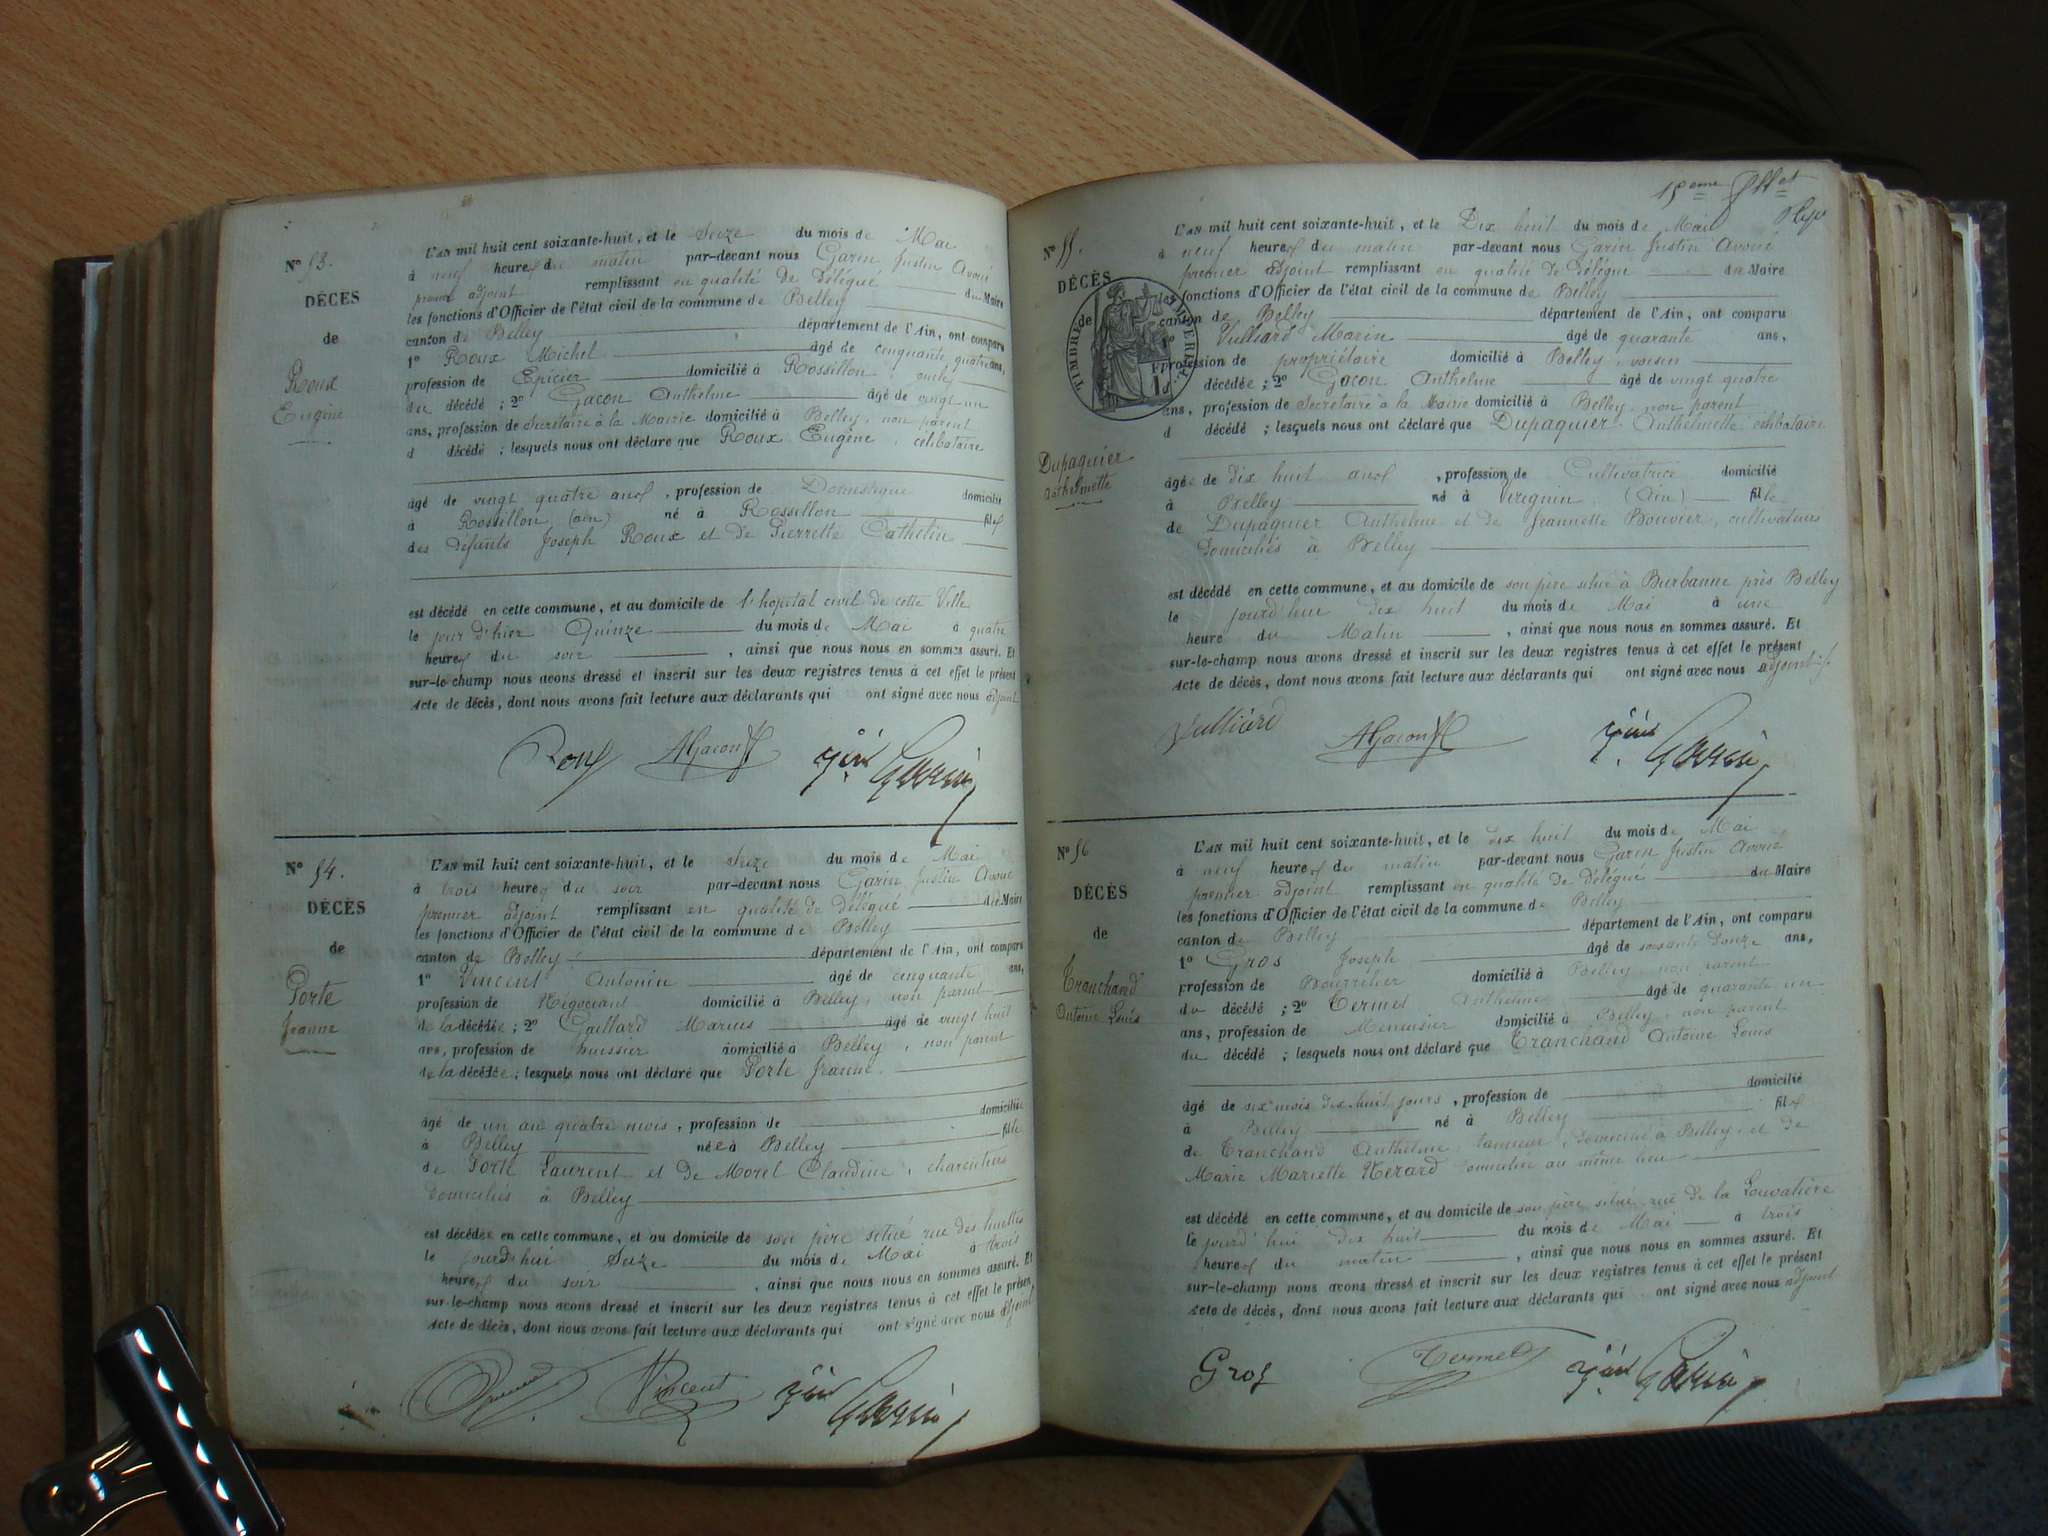 N° 53.
DÉCÈS
de
Roux
Eugène
L'AN mil huit cent soixante-huit, et le Seize du mois de Mai
à neuf heures du matin par-devant nous Garin Justin Avoué
premier adjoint remplissant en qualité de Délégué du Maire
les fonctions d'Officier de l'état civil de la commune de Belley
canton de Belley département de l'Ain, ont comparu
1° Roux Michel âgé de cinquante quatre ans,
profession de Epicier domicilié à Rossillon oncle
du décédé ; 2° Gacon Anthelme âgé de vingt un
ans, profession de Secrétaire à la Mairie domicilié à Belley, non parent
d décédé ; lesquels nous ont déclaré que Roux Eugène, célibataire
âgé de vingt quatre ans, profession de Domestique domicilié
à Rossillon (ain) né à Rossillon fils
des défunts Joseph Roux et de Pierrette Cathelin
est décédé en cette commune, et au domicile de l'hopital civil de cette Ville
le jour d'hier Quinze du mois de Mai à quatre
heures du soir, ainsi que nous nous en sommes assuré. Et
sur-le-champ nous avons dressé et inscrit sur les deux registres tenus à cet effet le présent
Acte de décès, dont nous avons fait lecture aux déclarants qui ont signé avec nous adjoint
Roux AGacon Garin
N° 54.
DÉCÈS
de
Porte
Jeanne
L'AN mil huit cent soixante-huit, et le Seize du mois de Mai
à trois heures du soir par-devant nous Garin Justin Avoué
premier adjoint remplissant en qualité de Délégué du Maire
les fonctions d'Officier de l'état civil de la commune de Belley
canton de Belley département de l'Ain, ont comparu
1° Vincent Antonin âgé de cinquante ans,
profession de Négociant domicilié à Belley, non parent
de la décédée ; 2° Gaillard Marius âgé de vingt huit
ans, profession de huissier domicilié à Belley, non parent
de la décédée ; lesquels nous ont déclaré que Porte Jeanne
âgé de un an quatre mois, profession de domicilié
à Belley née à Belley fille
de Porte Laurent et de Morel Claudine, charcutiers
domiciliés à Belley
est décédée en cette commune, et au domicile de son père situé rue des huettes
le jourd'hui Seize du mois de Mai à trois
heures du soir, ainsi que nous nous en sommes assuré. Et
sur-le-champ nous avons dressé et inscrit sur les deux registres tenus à cet effet le présent
Acte de décès, dont nous avons fait lecture aux déclarants qui ont signé avec nous adjoint
Vincent Garin
15eme
N° 55.
DÉCÈS
de
TIMBRE IMPÉRIAL
Dupaquier
Anthelmette
L'AN mil huit cent soixante-huit, et le Dix huit du mois de Mai
à neuf heures du matin par-devant nous Garin Justin Avoué
premier adjoint remplissant en qualité de Délégué du Maire
les fonctions d'Officier de l'état civil de la commune de Belley
canton de Belley département de l'Ain, ont comparu
1° Vulliard Marin âgé de quarante ans,
profession de propriétaire domicilié à Belley, voisin
décédée ; 2° Gacon Anthelme âgé de vingt quatre
ans, profession de Secrétaire à la Mairie domicilié à Belley, non parent
d décédé ; lesquels nous ont déclaré que Dupaquier Anthelmette célibataire
âgée de dix huit ans, profession de Cultivatrice domicilié
à Belley né à Virignin (Ain) fille
de Dupaquier Anthelme et de Jeannette Bouvier, cultivateurs
domiciliés à Belley
est décédé en cette commune, et au domicile de son père situé à Burbanne près Belley
le jourd'hui dix huit du mois de Mai à une
heure du Matin, ainsi que nous nous en sommes assuré. Et
sur-le-champ nous avons dressé et inscrit sur les deux registres tenus à cet effet le présent
Acte de décès, dont nous avons fait lecture aux déclarants qui ont signé avec nous adjoint
Vulliard AGacon Garin
N° 56
DÉCÈS
de
Tranchand
Antoine Louis
L'AN mil huit cent soixante-huit, et le dix huit du mois de Mai
à neuf heures du matin par-devant nous Garin Justin Avoué
premier adjoint remplissant en qualité de Délégué du Maire
les fonctions d'Officier de l'état civil de la commune de Belley
canton de Belley département de l'Ain, ont comparu
1° Gros Joseph âgé de soixante douze ans,
profession de Bourrelier domicilié à Belley non parent
du décédé ; 2° Termet Anthelme âgé de quarante un
ans, profession de Menuisier domicilié à Belley, non parent
du décédé ; lesquels nous ont déclaré que Tranchand Antoine Louis
âgé de six mois dix huit jours, profession de domicilié
à Belley né à Belley fils
de Tranchand Anthelme, tanneur, domicilié à Belley, et de
Marie Mariette Nerard domiciliée au même lieu
est décédé en cette commune, et au domicile de son père situé rue de la Louvatière
le jourd'hui dix huit du mois de Mai à trois
heures du matin, ainsi que nous nous en sommes assuré. Et
sur-le-champ nous avons dressé et inscrit sur les deux registres tenus à cet effet le présent
Acte de décès, dont nous avons fait lecture aux déclarants qui ont signé avec nous adjoint
Gros Termet Garin